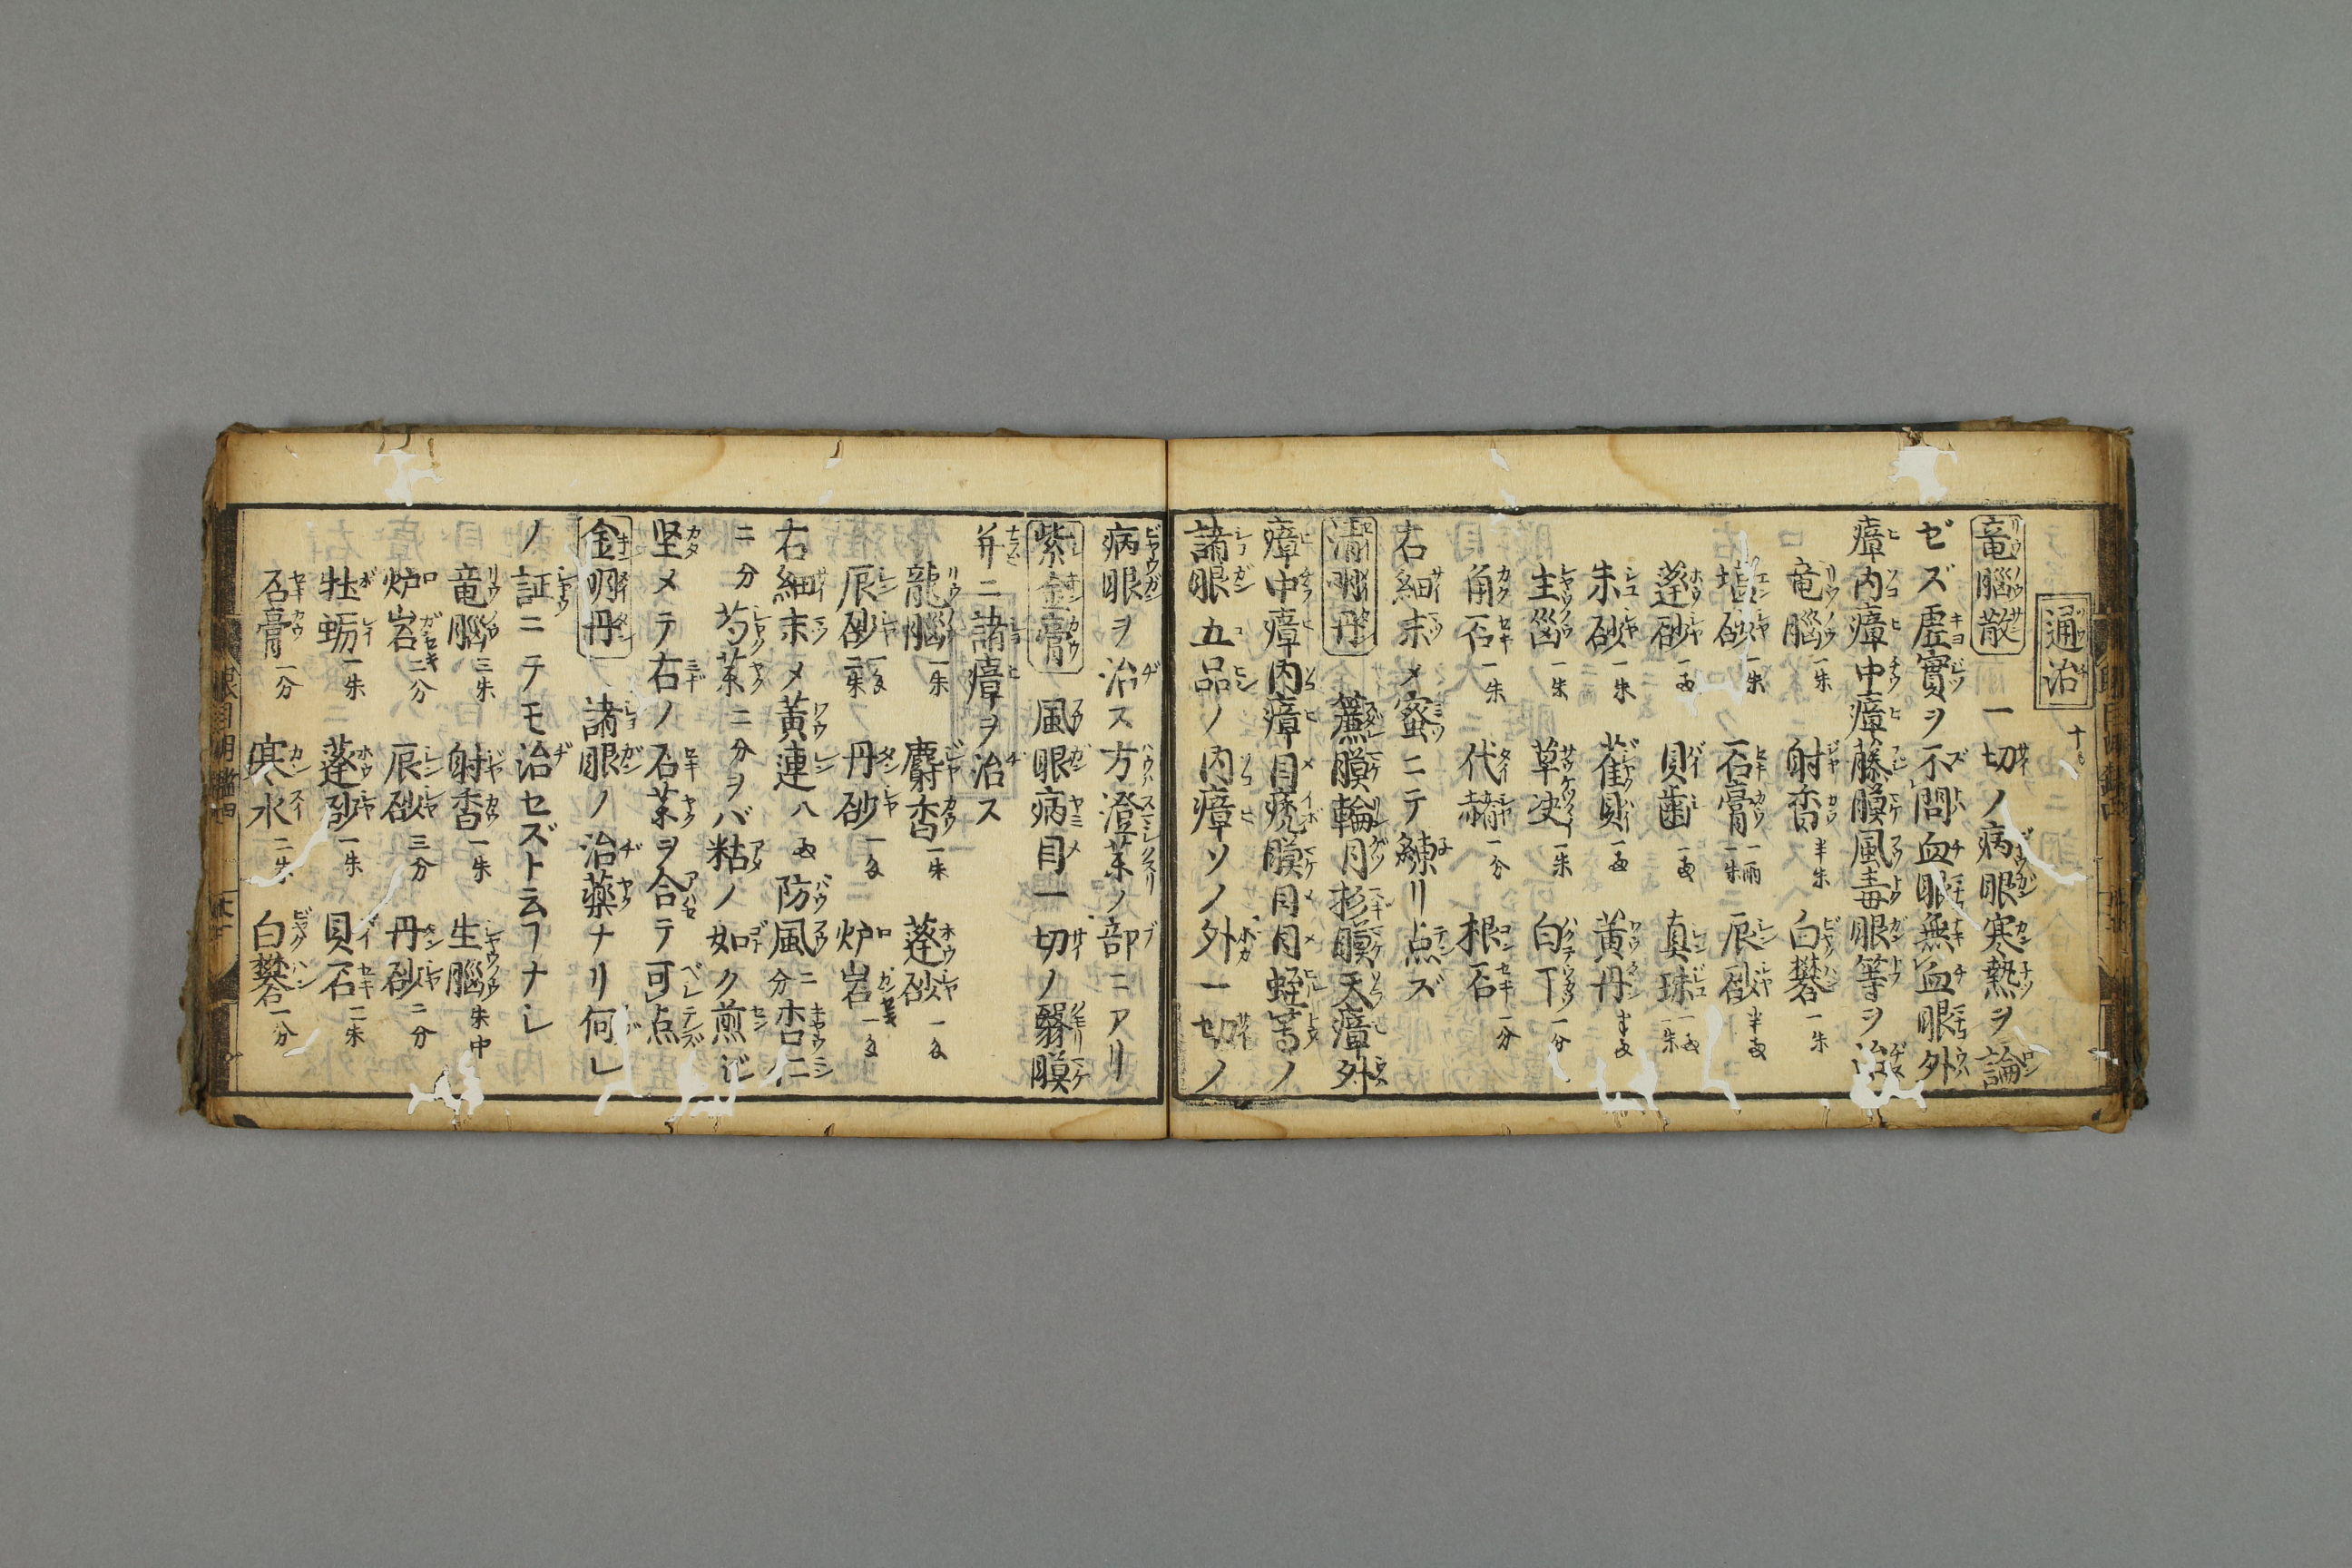 通治 十
竜脳散 一切ノ病眼寒熱ヲ論
ゼズ虚實ヲ不問血眼無血眼外
瘴内瘴中瘴藤膜風毒眼等ヲ治ス
竜脳一朱 射香半朱 白礬一朱
塩砂一朱 石膏一両一朱 辰砂半両
蓬砂一両 貝歯一両 真珠一両一朱
朱砂一朱 雀貝一両 黄丹半両
生脳一朱 草决一朱 白丁一分
角石一朱 代赭一分 根石一分
右細末メ蜜ニテ練リ点ズ
清明丹 簾膜輪月杉膜天瘴外
瘴中瘴内瘴目疣膜月月蛭等ノ
諸眼五品ノ内瘴ソノ外一切ノ
病眼ヲ治ス方澄薬ノ部ニアリ
紫金膏 風眼病目一切ノ翳膜
并ニ諸瘴ヲ治ス
龍脳一朱 麝香一朱 蓬砂一両
辰砂一両二朱 丹砂一両 炉岩一両
右細末メ黄連八両 防風二分 杏仁
二分 芍薬二分ヲバ粘ノ如ク煎ジ
堅メテ右ノ石薬ヲ合テ可点
金明丹 諸眼ノ治薬ナリ何レ
ノ証ニテモ治セズト云フナシ
竜脳三朱 射香一朱 生脳朱中
炉岩二分 辰砂三分 丹砂二分
牡蛎一朱 蓬砂一朱 貝石二朱
石膏一分 寒水二朱 白礬一分
眼目明鑑四